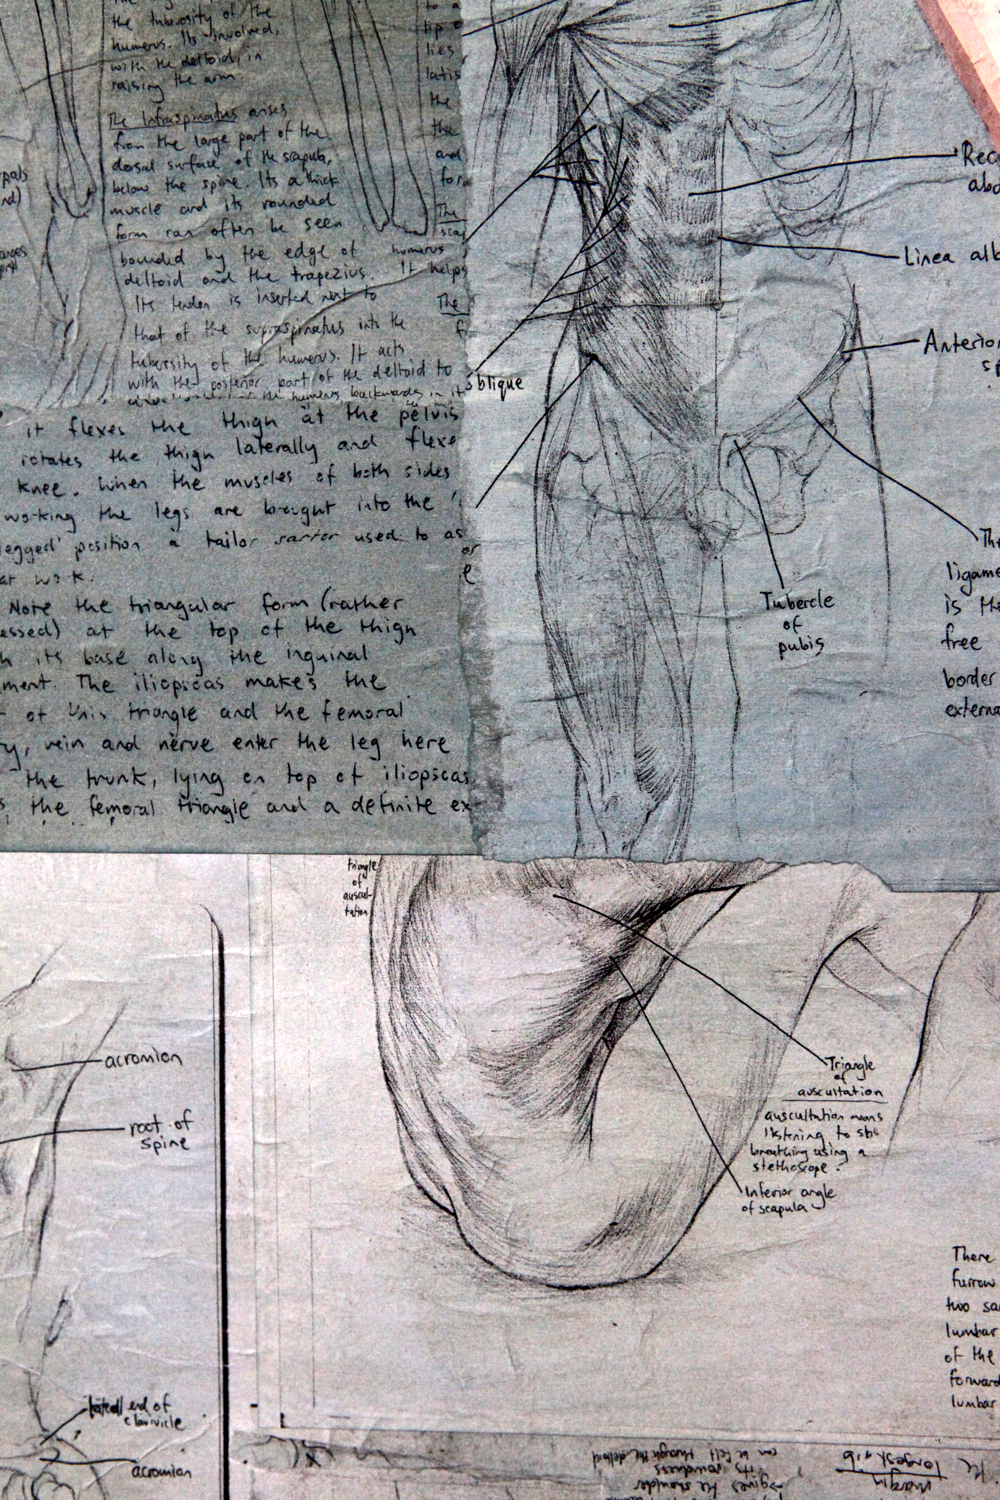 the tuberosity of the
humerus. Its involved,
with the deltoid, in
raising the arm.
The Infraspinatus arises
from the large part of the
dorsal surface of the scapula,
below the spine. Its a thick
muscle and its rounded
form can often be seen
bounded by the edge of
deltoid and the trapezius.
Its tendon is inserted next to
that of the supraspinatus into the
tuberosity of the humerus. It acts
with the posterior part of the deltoid to
the humerus backwards in it
to a
lies
latis
the
the
and
for
The
humerus
It helps
The
it flexes the thigh at the pelvis
rotates the thigh laterally and flexe
knee. When the muscles of both sides
working the legs are brought into the
legged' position a tailor sartor used to as
at work.
Note the triangular form (rather
essed) at the top of the thigh
h its base along the inguinal
ment. The iliopsoas makes the
of this triangle and the femoral
y, vein and nerve enter the leg here
the trunk, lying on top of iliopsoas
s the femoral triangle and a definite ex
oblique
Rec
abd
Linea alb
Anterior
sp
Tubercle
of
pubis
The
ligame
is the
free
border
externa
triangle
of
auscul-
tation
acromion
root of
spine
lateral end of
clavicle
acromion
Triangle
of
auscultation
auscultation means
listening to sbs
breathing using a
stethoscope.
Inferior angle
of scapula
There
furrow
two sa
lumbar
of the
forward
lumbar
can be felt through the deltoid
its roundness
gives the shoulder
longest rib
margin